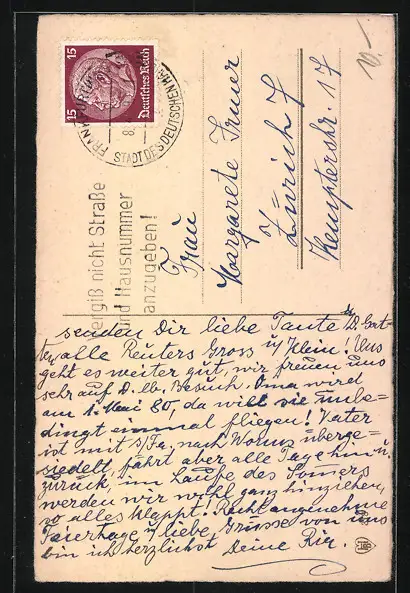 15 15
Deutsches Reich
FRANKFURT
STADT DES DEUTSCHEN HAND
10.-
Vergiß nicht Straße
und Hausnummer
anzugeben!
Frau
Margarete
Zürich 7
Kempterstr. 17
senden Dir liebe Tante u. D. Gat-
ten alle Reuters Gross u. Klein! Uns
geht es weiter gut, wir freuen uns
sehr auf D. lb. Besuch. Oma wird
am 1. Mai 80, da will sie unbe-
dingt einmal fliegen! Vater
ist mit s/Fa. nach Worms überge-
siedelt, fährt aber alle Tage hin u.
zurück, im Laufe des Somers
werden wir wohl ganz hinziehen,
so alles klappt! Recht angenehme
Feiertage u. liebe Grüsse von uns
bin ich herzlichst Deine